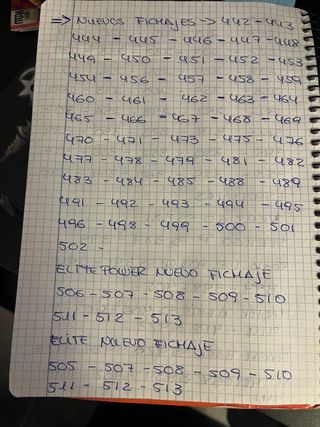 ⇒ NUEVOS FICHAJES → 442 - 443
444 - 445 - 446 - 447 - 448
449 - 450 - 451 - 452 - 453
454 - 456 - 457 - 458 - 459
460 - 461 - 462 - 463 - 464
465 - 466 - 467 - 468 - 469
470 - 471 - 473 - 475 - 476
477 - 478 - 479 - 481 - 482
483 - 484 - 485 - 488 - 489
491 - 492 - 493 - 494 - 495
496 - 498 - 499 - 500 - 501
502 -
ELITE POWER NUEVO FICHAJE
506 - 507 - 508 - 509 - 510
511 - 512 - 513
ELITE NUEVO FICHAJE
505 - 507 - 508 - 509 - 510
511 - 512 - 513